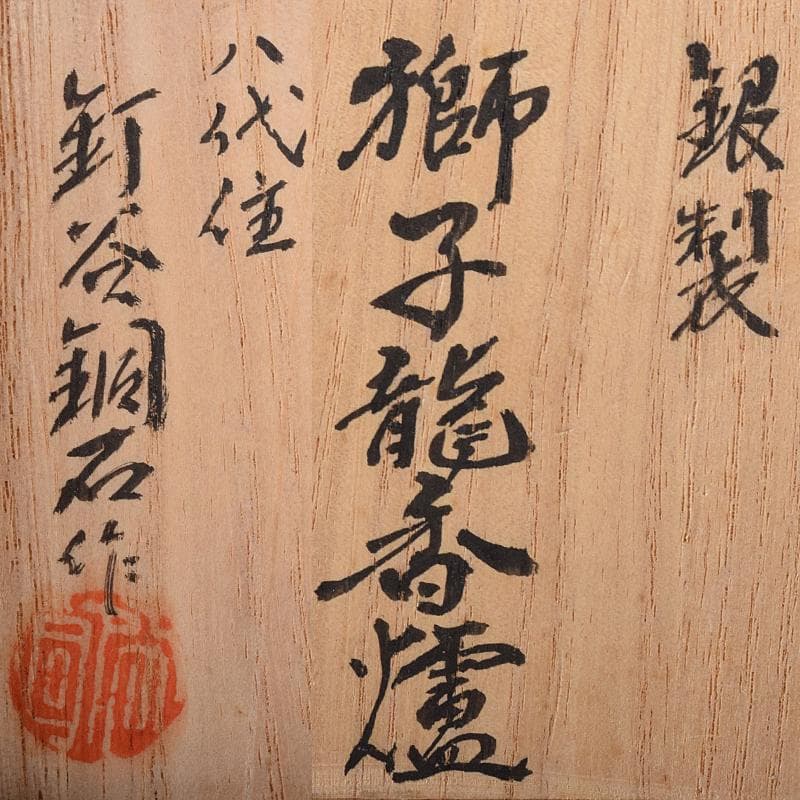 銀製
獅子龍香爐
八代住
釘谷銅石作